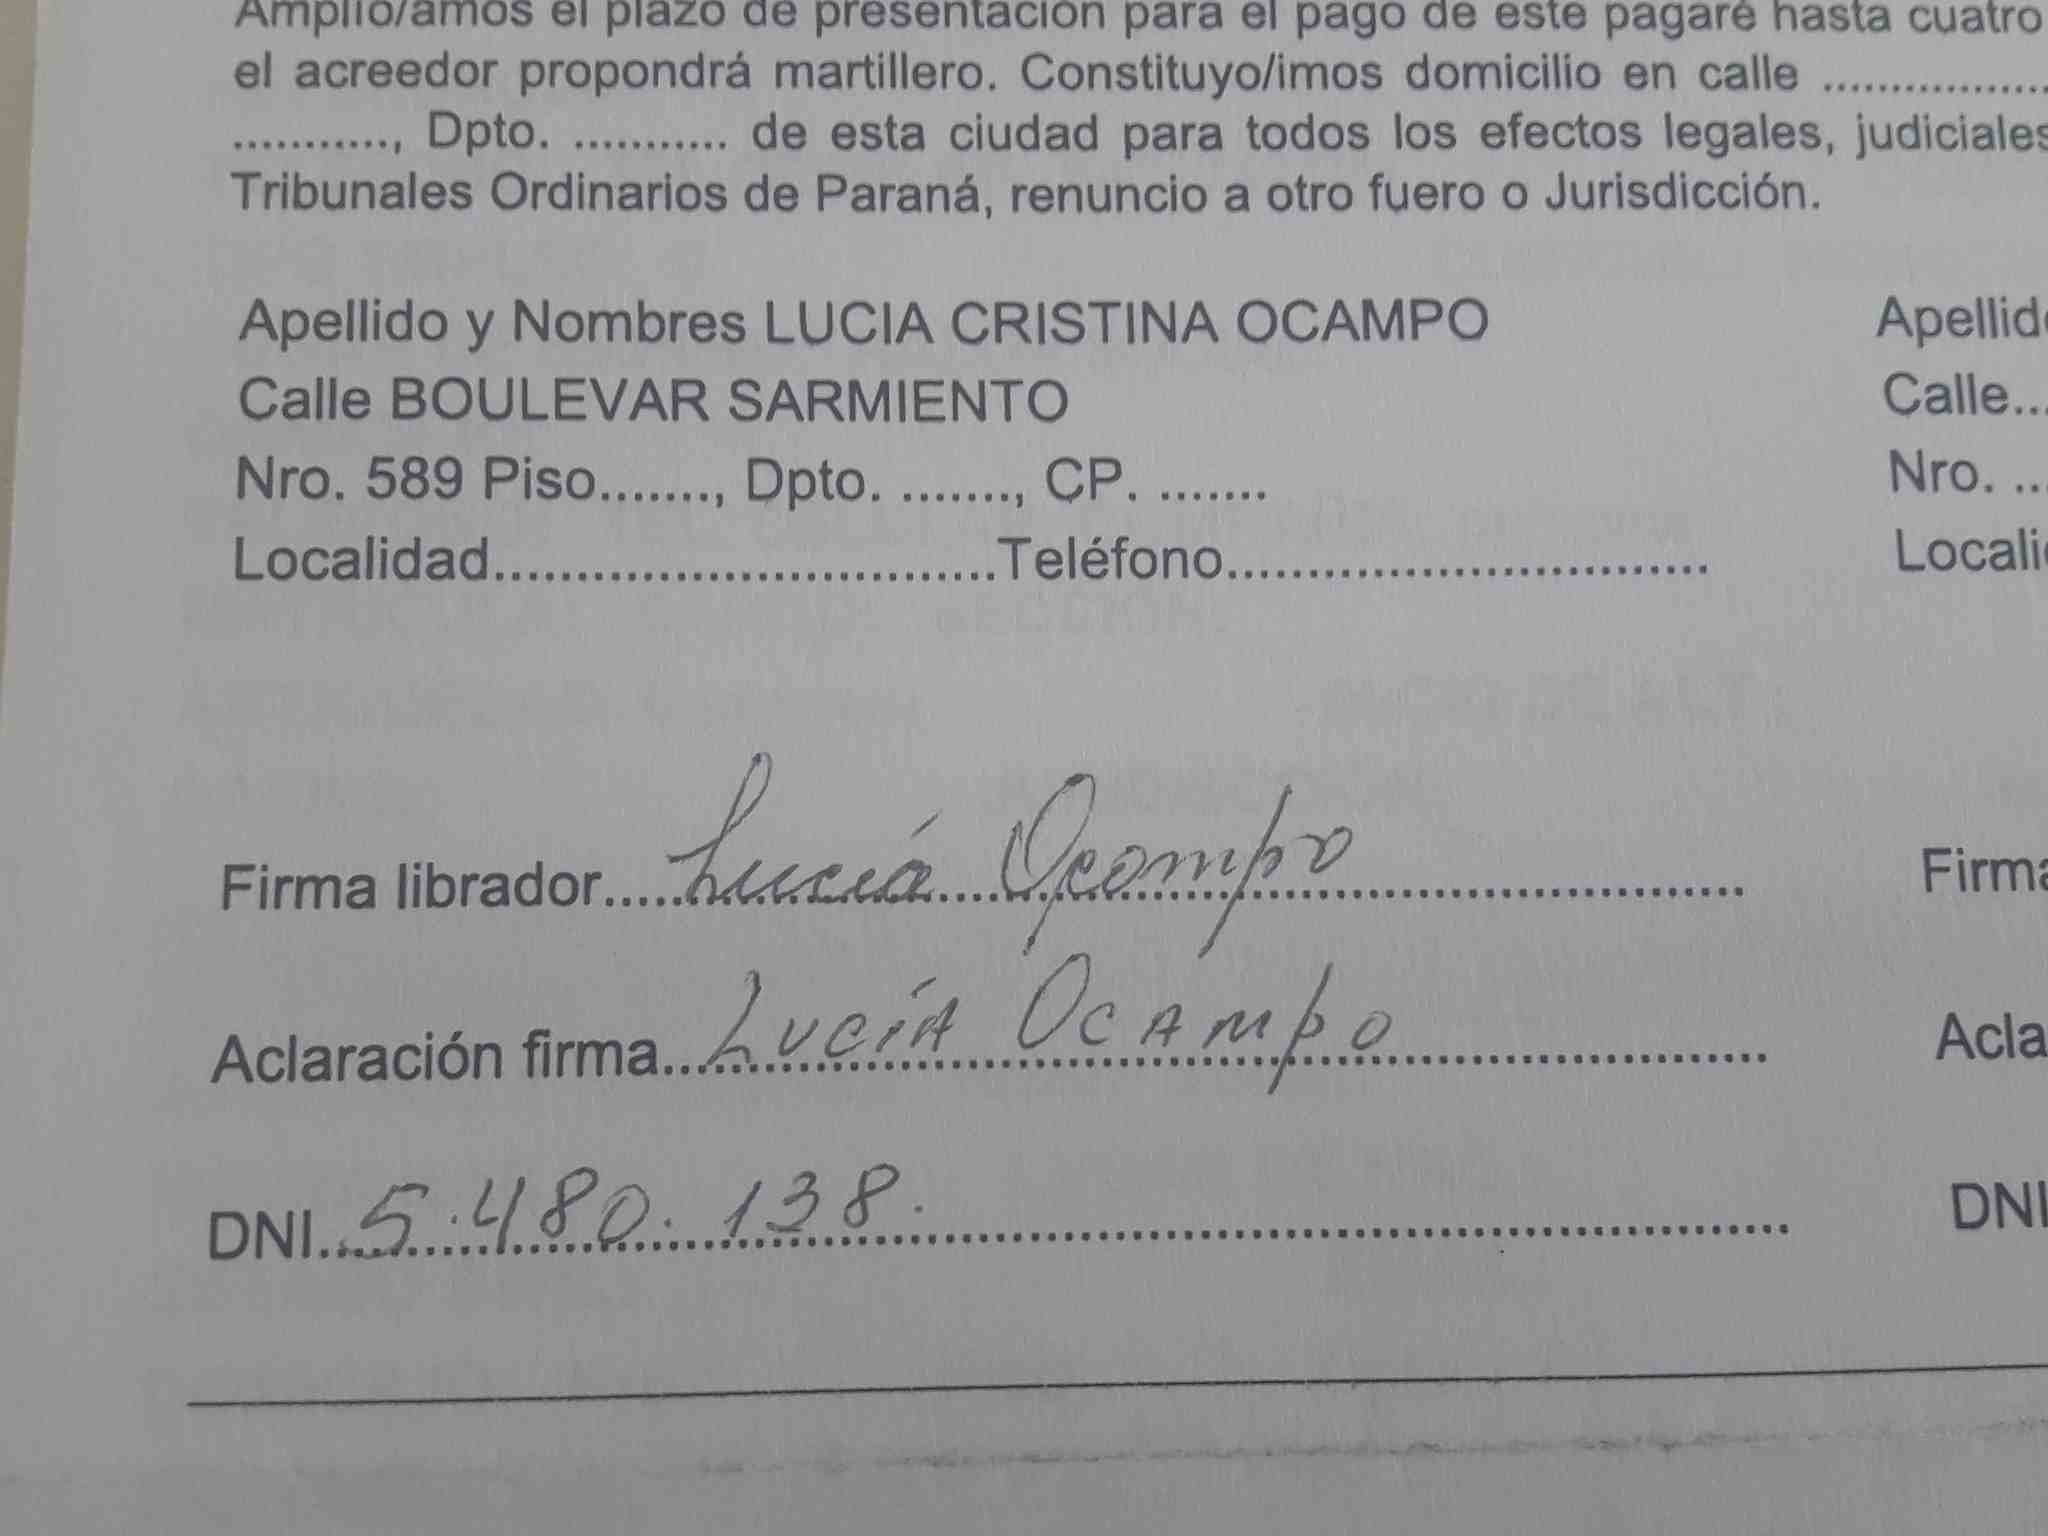 Amplio/amos el plazo de presentación para el pago de este pagaré hasta cuatro
el acreedor propondrá martillero. Constituyo/imos domicilio en calle ................
..........., Dpto. ........... de esta ciudad para todos los efectos legales, judiciales
Tribunales Ordinarios de Paraná, renuncio a otro fuero o Jurisdicción.
Apellido y Nombres LUCIA CRISTINA OCAMPO
Calle BOULEVAR SARMIENTO
Nro. 589 Piso......., Dpto. ......., CP. .......
Localidad..............................Teléfono.............................
Firma librador.....Lucía Ocampo
Aclaración firma...Lucía Ocampo
DNI..5.480.138.
Apellido
Calle...
Nro. ...
Locali
Firma
Acla
DNI